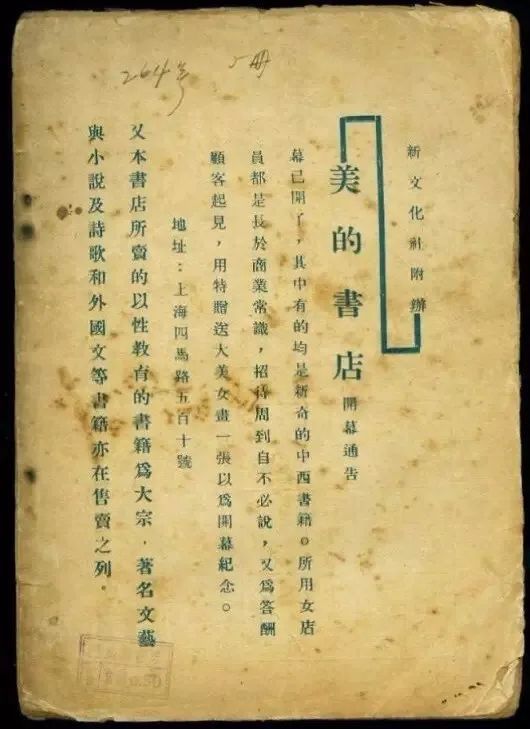 264号 1册
新文化社附辦
美的書店開幕通告
幕已開了，其中有的均是新奇的中西書籍。所用女店
員都是長於商業常識，招待周到自不必說，又爲答酬
顧客起見，用特贈送大美女畫一張以爲開幕紀念。
地址：上海四馬路五百十號
又本書店所賣的以性教育的書籍爲大宗．著名文藝
與小說及詩歌和外國文等書籍亦在售賣之列．
0.50